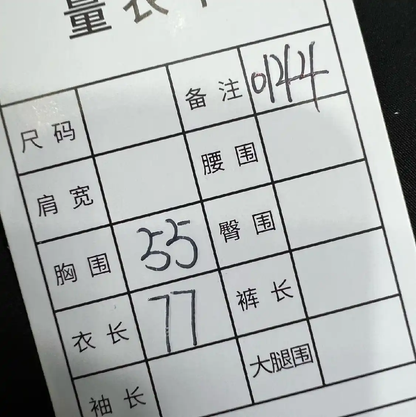 量衣卡
尺码 备注 0144
肩宽 腰围
胸围 55 臀围
衣长 77 裤长
袖长 大腿围